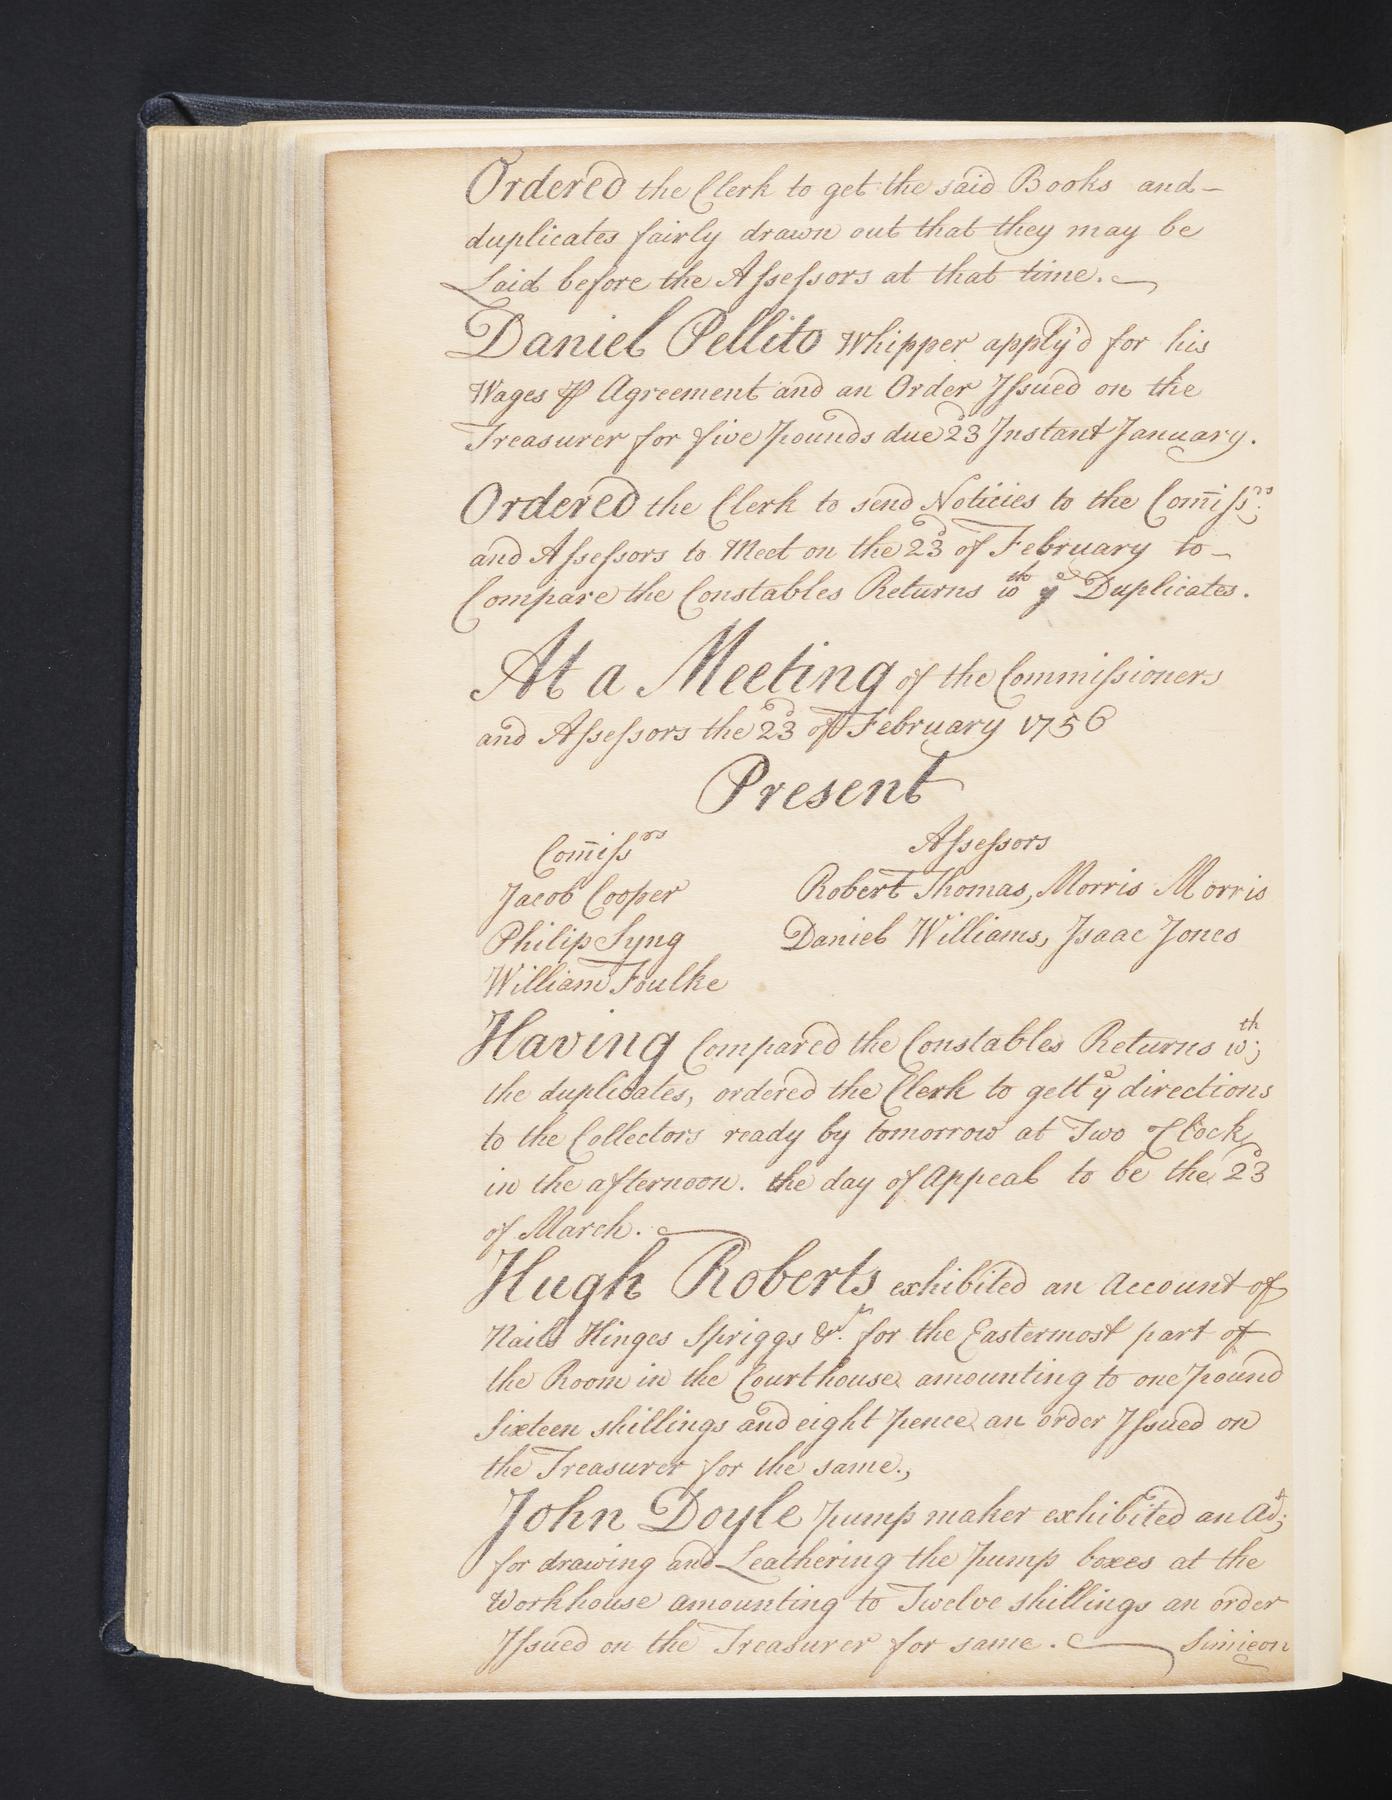 Ordered the Clerk to get the said Books and –
duplicates fairly drawn out that they may be
Laid before the Aſseſsors at that time.
Daniel Pellito Whipper apply'd for his
Wages ⅌ Agreement and an Order Iſsued on the
Treasurer for five Pounds due 23d Instant January.
Ordered the Clerk to send Noticies to the Com̄iſsrs:
and Aſseſsors to Meet on the 23d of February to –
Compare the Constables Returns wth ye Duplicates.
At a Meeting of the Commiſsioners
and Aſseſsors the 23d of February 1756
Present
Com̄iſsrs
Jacob Cooper
Philip Syng
William Foulke
Aſseſsors
Robert Thomas, Morris Morris
Daniel Williams, Isaac Jones
Having Compared the Constables Returns wth;
the duplicates, ordered the Clerk to gett ye directions
to the Collectors ready by tomorrow at Two oClock
in the afternoon. the day of Appeal to be the 23d
of March.
Hugh Roberts exhibited an Account of
Nails Hinges Spriggs &c. for the Eastermost part of
the Room in the Courthouse amounting to one Pound
Sixteen shillings and eight Pence an order Iſsued on
the Treasurer for the same.,
John Doyle Pump maker exhibited an
for drawing and Leathering the Pump boxes at the
Workhouse amounting to Twelve shillings an order
Iſsued on the Treasurer for same. Simieon